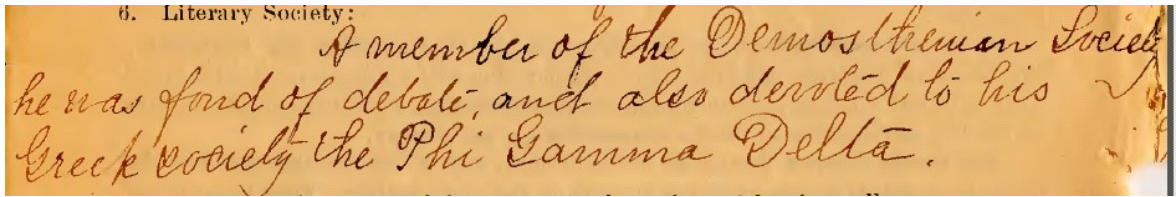 6. Literary Society:
A member of the Demosthenian Society
he was fond of debate, and also devoted to his
Greek society the Phi Gamma Delta.